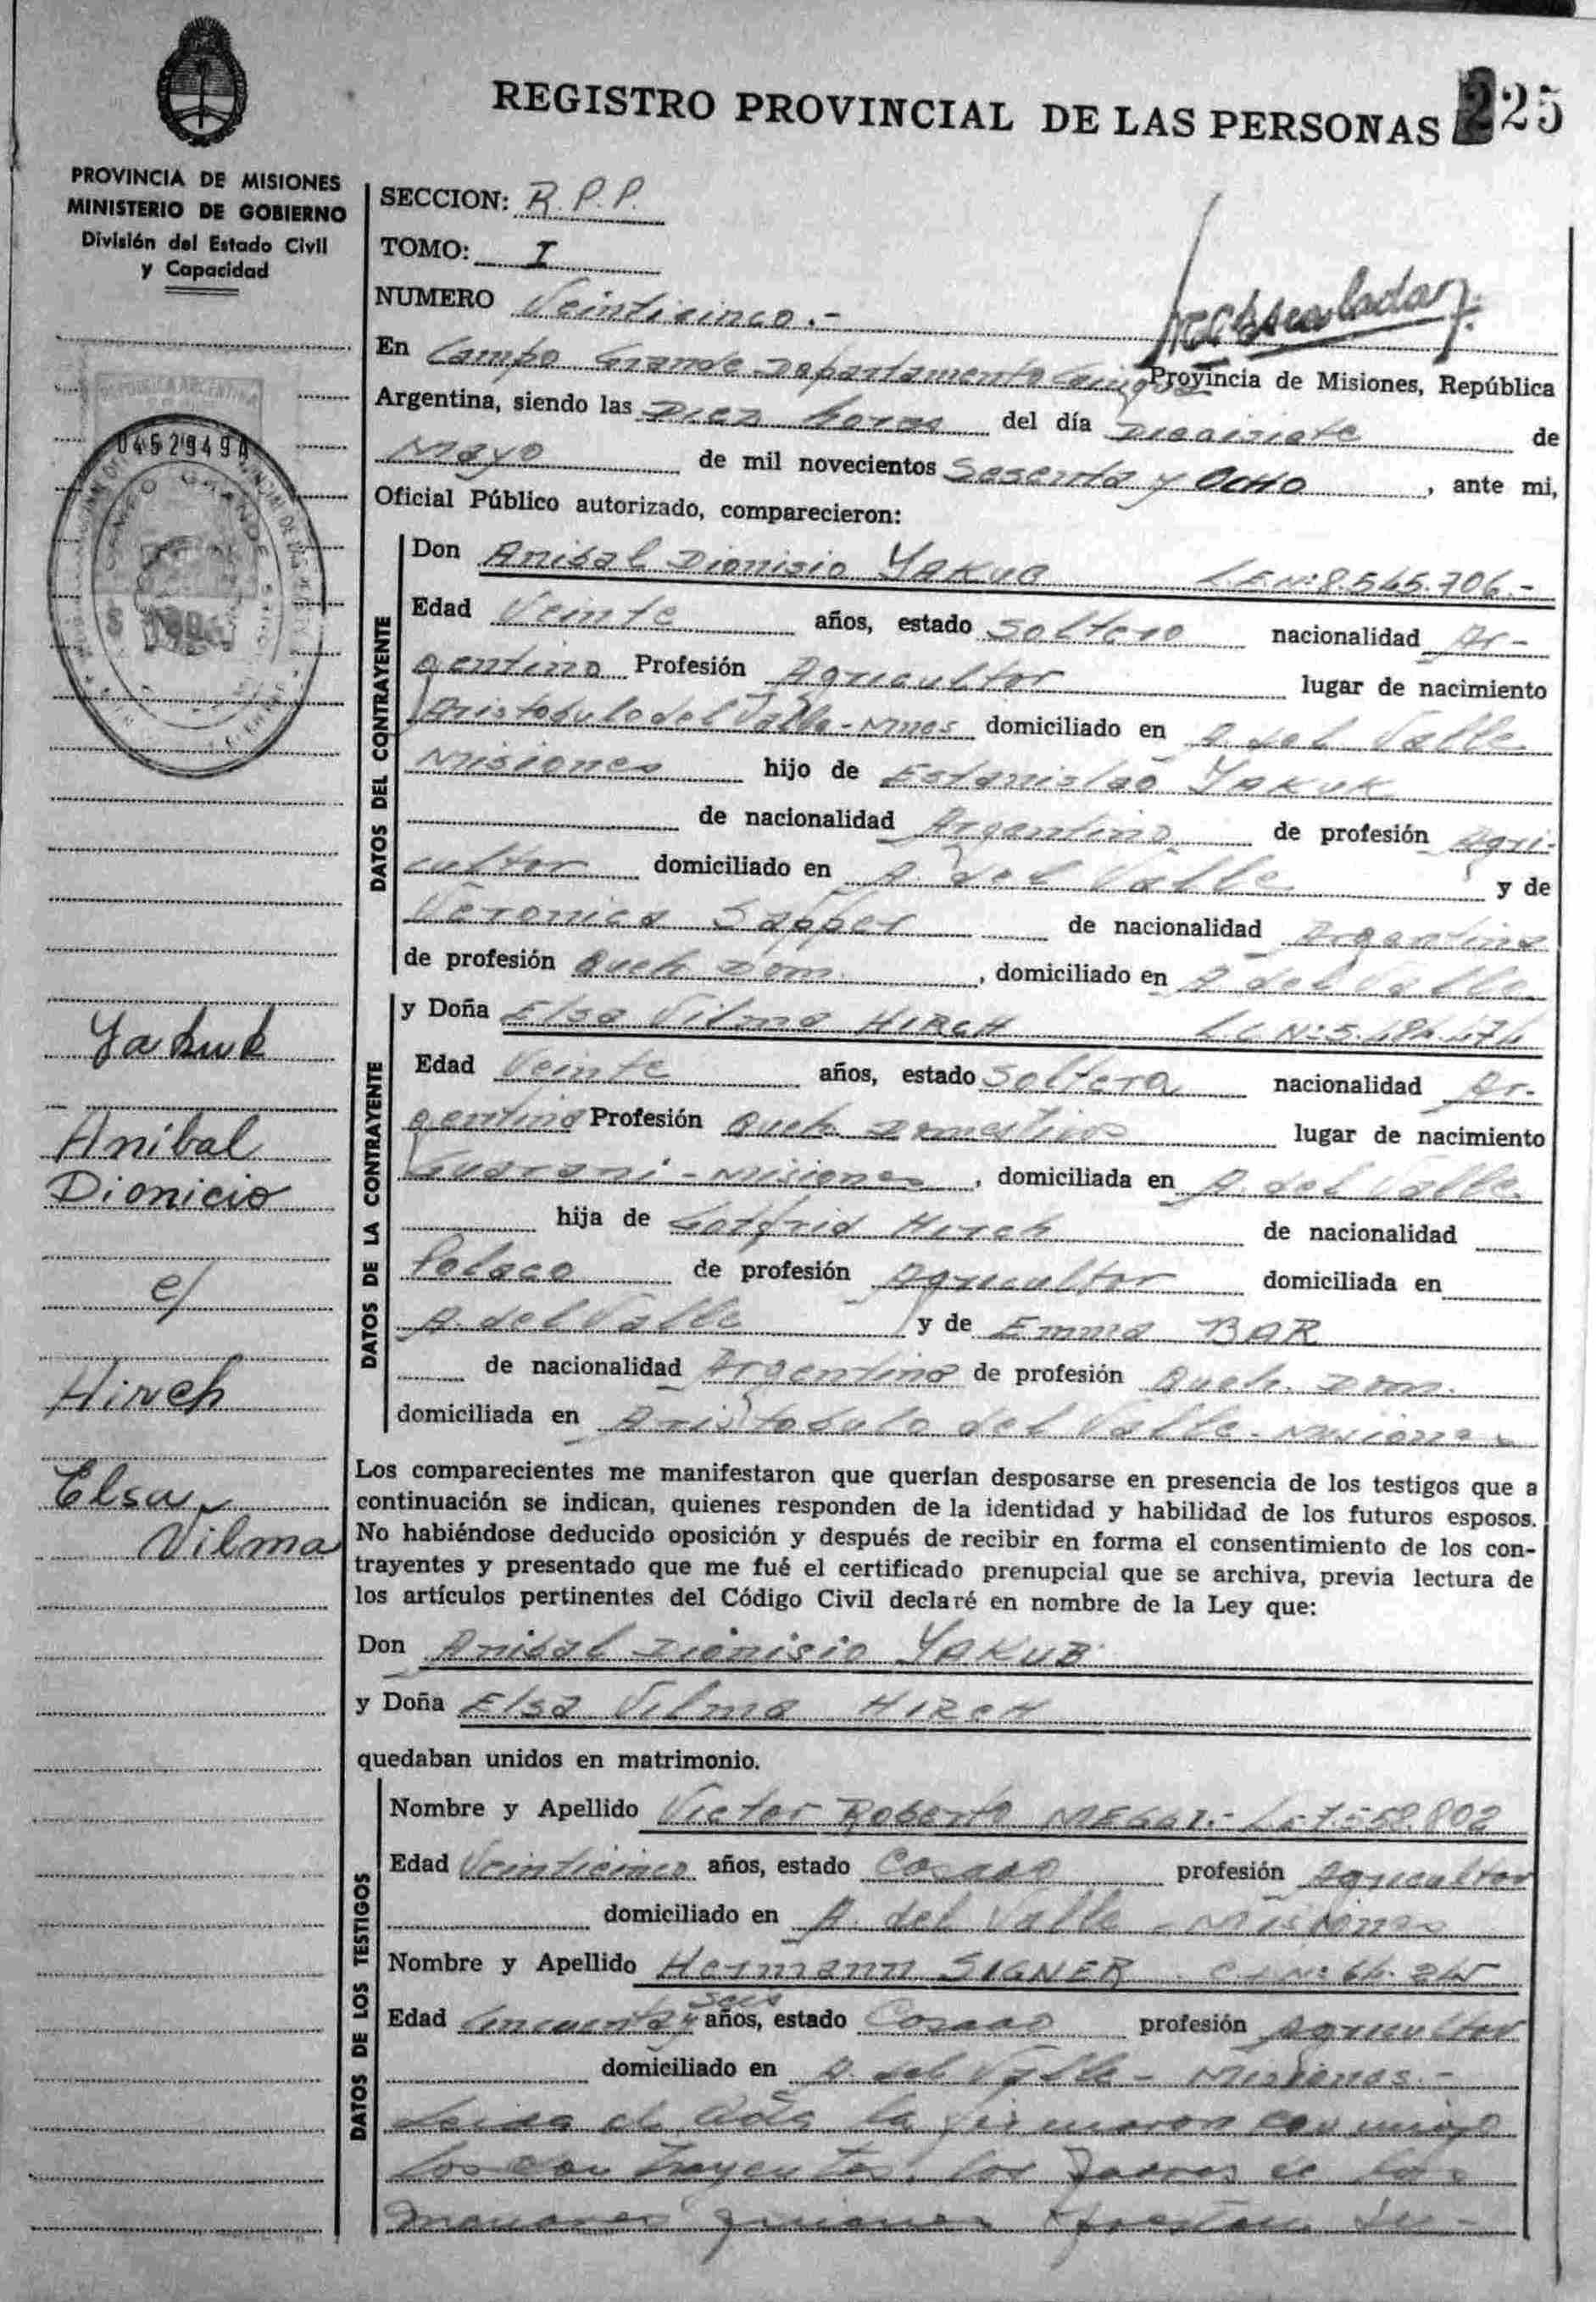 REGISTRO PROVINCIAL DE LAS PERSONAS 225
PROVINCIA DE MISIONES
MINISTERIO DE GOBIERNO
División del Estado Civil
y Capacidad
SECCION: R. P. P.
TOMO: I
NUMERO Veinticinco.-
En Campo Grande Departamento Provincia de Misiones, República
Argentina, siendo las Diez horas del día Diecisiete de
Mayo de mil novecientos Sesenta y Ocho, ante mi,
Oficial Público autorizado, comparecieron:
REPUBLICA ARGENTINA
CAMPO GRANDE
DATOS DEL CONTRAYENTE
Don Anibal Dionisio YAKUB L.E.Nº 8.565.706.-
Edad Veinte años, estado Soltero nacionalidad Ar-
gentino Profesión Agricultor lugar de nacimiento
Aristobulo del Valle-Mnes domiciliado en A. del Valle
Misiones hijo de Estanislao YAKUK
de nacionalidad Argentino de profesión Agri-
cultor domiciliado en A. del Valle y de
Veronica Sapper de nacionalidad Argentina
de profesión Queh. Dom., domiciliado en A del Valle
DATOS DE LA CONTRAYENTE
y Doña Elsa Vilma HIRCH L.C Nº 5.484.474
Edad Veinte años, estado Soltera nacionalidad Ar-
gentina Profesión Queh. Domesticos lugar de nacimiento
Guarani - Misiones, domiciliada en A. del Valle
hija de Hirch de nacionalidad
Polaco de profesión Agricultor domiciliada en
A. del Valle y de Emma BAR
de nacionalidad Argentina de profesión Queh. Dom.
domiciliada en Aristobulo del Valle - Misiones
Yakuk
Anibal
Dionicio
c/
Hirch
Elsa
Vilma
Los comparecientes me manifestaron que querían desposarse en presencia de los testigos que a
continuación se indican, quienes responden de la identidad y habilidad de los futuros esposos.
No habiéndose deducido oposición y después de recibir en forma el consentimiento de los con-
trayentes y presentado que me fué el certificado prenupcial que se archiva, previa lectura de
los artículos pertinentes del Código Civil declaré en nombre de la Ley que:
Don Anibal Dionisio YAKUB
y Doña Elsa Vilma HIRCH
quedaban unidos en matrimonio.
DATOS DE LOS TESTIGOS
Nombre y Apellido Victor Roberto 7.558.802
Edad Veinticinco años, estado Casado profesión Agricultor
domiciliado en A. del Valle - Misiones
Nombre y Apellido Hermann SIGNER
Edad Cincuenta y seis años, estado Casado profesión Agricultor
domiciliado en A. del Valle - Misiones.-
la firmaron conmigo
los contrayentes, los padres de los
menores quienes